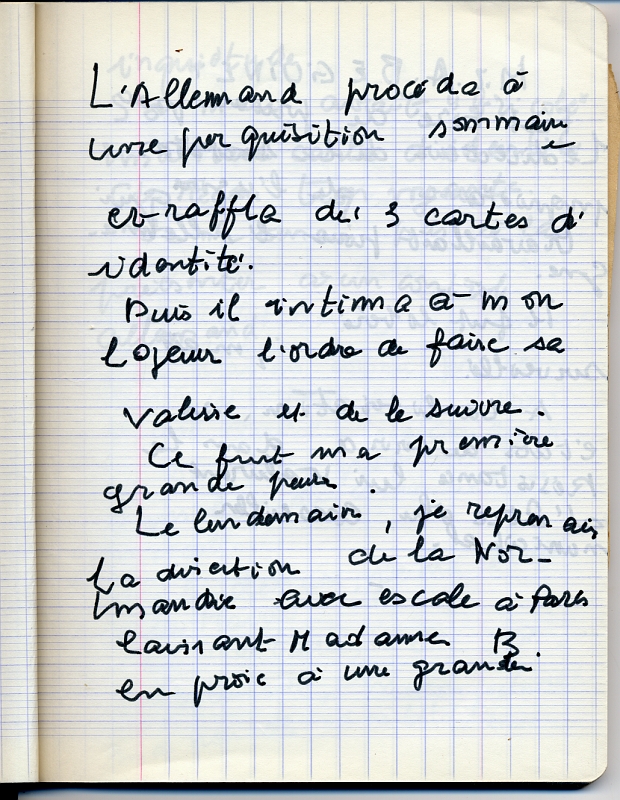 L'Allemand procéda à
une perquisition sommaire
et raffla des 3 cartes d'
identité.
Puis il intima à mon
logeur l'ordre de faire sa
valise et de le suivre.
Ce fut ma première
grande peur.
Le lendemain, je reprenais
la direction de la Nor-
mandie avec escale à Paris
laissant Madame B
en proie à une grande.